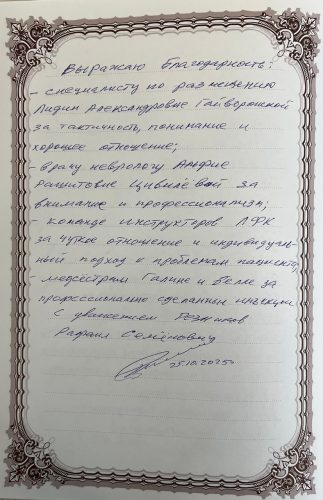 Выражаю благодарность:
- специалисту по размещению
Лидии Александровне Гайворонской
за тактичность, понимание и
хорошее отношение;
- врачу неврологу Альфие
Рашитовне Цивилёвой за
внимание и профессионализм;
- команде инструкторов ЛФК
за чуткое отношение и индивидуаль-
ный подход к проблемам пациента;
- медсёстрам Галине и Белле за
профессионально сделанные инъекции
С уважением Резников
Рафаил Семёнович
25.10.2025г